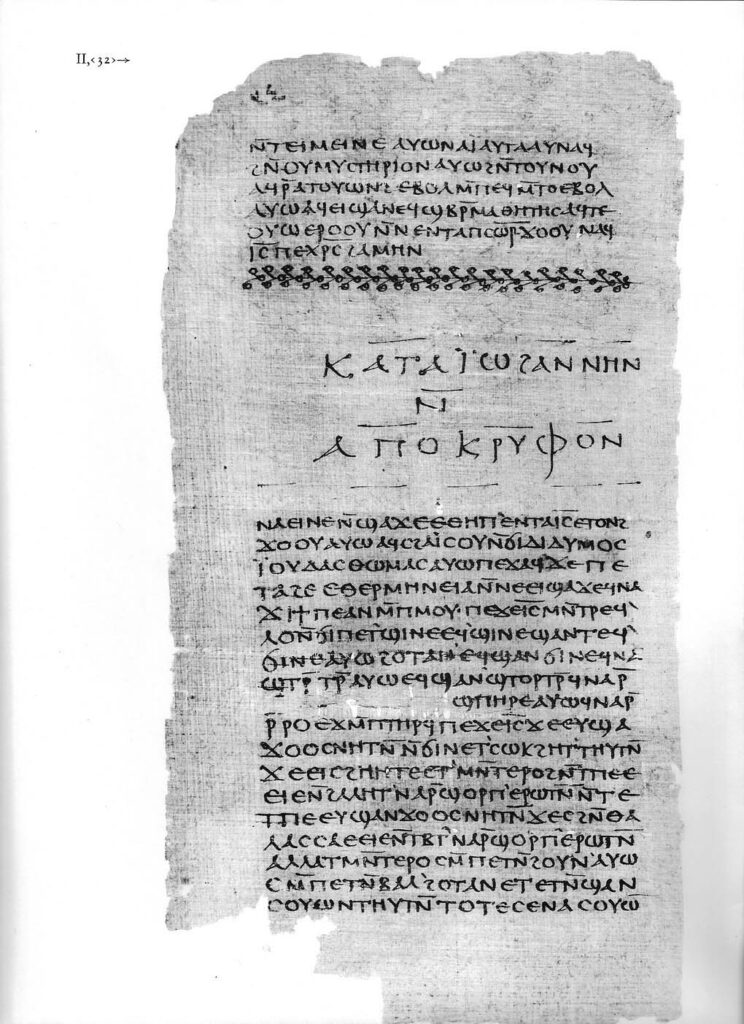 II,‹32›→
ⲛ̄ⲧⲉⲓⲙⲉⲓⲛⲉ ⲁⲩⲱ ⲛⲁⲓ̈ ⲁⲩⲧⲁⲁⲩ ⲛⲁϥ
ϩⲛ̄ ⲟⲩⲙⲩⲥⲧⲏⲣⲓⲟⲛ ⲁⲩⲱ ϩⲛ̄ ⲧⲟⲩⲛⲟⲩ
ⲁϥⲣ̄ⲁⲧⲟⲩⲱⲛϩ ⲉⲃⲟⲗ ⲙ̄ⲡⲉϥⲙ̄ⲧⲟ ⲉⲃⲟⲗ
ⲁⲩⲱ ⲁϥⲉⲓ ϣⲁ ⲛⲉϥϣⲃⲣ̄ⲙⲁⲑⲏⲧⲏⲥ ⲁϥⲧⲉ
ⲟⲩⲱ ⲉⲣⲟⲟⲩ ⲛ̄ⲛⲉⲛⲧⲁⲡⲥⲱⲣ̄ ϫⲟⲟⲩ ⲛⲁϥ
ⲓ̅ⲥ̅ ⲡⲉⲭⲣ̅ⲥ̅ ϩⲁⲙⲏⲛ
ⲕⲁⲧⲁ ⲓ̈ⲱϩⲁⲛⲛⲏⲛ
ⲛ̄
ⲁⲡⲟⲕⲣⲩⲫⲟⲛ
ⲛⲁⲉⲓ ⲛⲉ ⲛ̄ϣⲁϫⲉ ⲉⲑⲏⲡ ⲉⲛⲧⲁⲓ̅ⲥ̅ ⲉⲧⲟⲛϩ
ϫⲟⲟⲩ ⲁⲩⲱ ⲁϥⲥϩⲁⲓⲥⲟⲩ ⲛ̄ϭⲓ ⲇⲓⲇⲩⲙⲟⲥ
ⲓ̈ⲟⲩⲇⲁⲥ ⲑⲱⲙⲁⲥ ⲁⲩⲱ ⲡⲉϫⲁϥ ϫⲉ ⲡⲉ
ⲧⲁϩⲉ ⲉⲑⲉⲣⲙⲏⲛⲉⲓⲁ ⲛ̄ⲛⲉⲉⲓϣⲁϫⲉ ϥⲛⲁ
ϫⲓ ϯⲡⲉ ⲁⲛ ⲙ̄ⲡⲙⲟⲩ· ⲡⲉϫⲉⲓ̅ⲥ̅ ⲙⲛ̄ⲧⲣⲉϥ
ⲗⲟ ⲛ̄ϭⲓ ⲡⲉⲧϣⲓⲛⲉ ⲉϥϣⲓⲛⲉ ϣⲁⲛⲧⲉϥ
ϭⲓⲛⲉ ⲁⲩⲱ ϩⲟⲧⲁⲛ ⲉϥϣⲁⲛϭⲓⲛⲉ ϥⲛⲁ
ϣⲧⲣ̄ⲧⲣ̄ ⲁⲩⲱ ⲉϥϣⲁⲛϣⲧⲟⲣⲧⲣ̄ ϥⲛⲁⲣ̄
ϣⲡⲏⲣⲉ ⲁⲩⲱ ϥⲛⲁⲣ̄
ⲣ̄ⲣⲟ ⲉϫⲙ̄ ⲡⲧⲏⲣϥ ⲡⲉϫⲉⲓ̅ⲥ̅ ϫⲉ ⲉⲩϣⲁ
ϫⲟⲟⲥ ⲛⲏⲧⲛ̄ ⲛ̄ϭⲓ ⲛⲉⲧⲥⲱⲕ ϩⲏⲧ ⲧⲏⲩⲧⲛ̄
ϫⲉ ⲉⲓⲥϩⲏⲏⲧⲉ ⲉⲧⲙⲛ̄ⲧⲉⲣⲟ ϩⲛ̄ ⲧⲡⲉ ⲉ
ⲉⲓⲉ ⲛ̄ϩⲁⲗⲏⲧ ⲛⲁⲣ̄ϣⲟⲣⲡ ⲉⲣⲱⲧⲛ̄ ⲛ̄ⲧⲉ
ⲧⲡⲉ ⲉⲩϣⲁⲛϫⲟⲟⲥ ⲛⲏⲧⲛ̄ ϫⲉ ⲥϩⲛ̄ ⲑⲁ
ⲗⲁⲥⲥⲁ ⲉⲉⲓⲉ ⲛ̄ⲧⲃⲧ ⲛⲁⲣ̄ϣⲟⲣⲡ ⲉⲣⲱⲧⲛ̄
ⲁⲗⲗⲁ ⲧⲙⲛ̄ⲧⲉⲣⲟ ⲥⲙ̄ⲡⲉⲧⲛ̄ϩⲟⲩⲛ ⲁⲩⲱ
ⲥⲙ̄ⲡⲉⲧⲛ̄ⲃⲁⲗ ϩⲟⲧⲁⲛ ⲉⲧⲉⲧⲛ̄ϣⲁⲛ
ⲥⲟⲩⲱⲛ ⲧⲏⲩⲧⲛ̄ ⲧⲟⲧⲉ ⲥⲉⲛⲁⲥⲟⲩⲱ